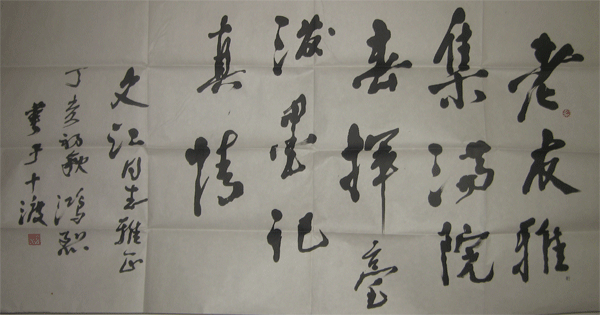 老友雅
集满院
春揮毫
泼墨记
真情
文江同志雅正
丁亥初秋鸿
書于十渡